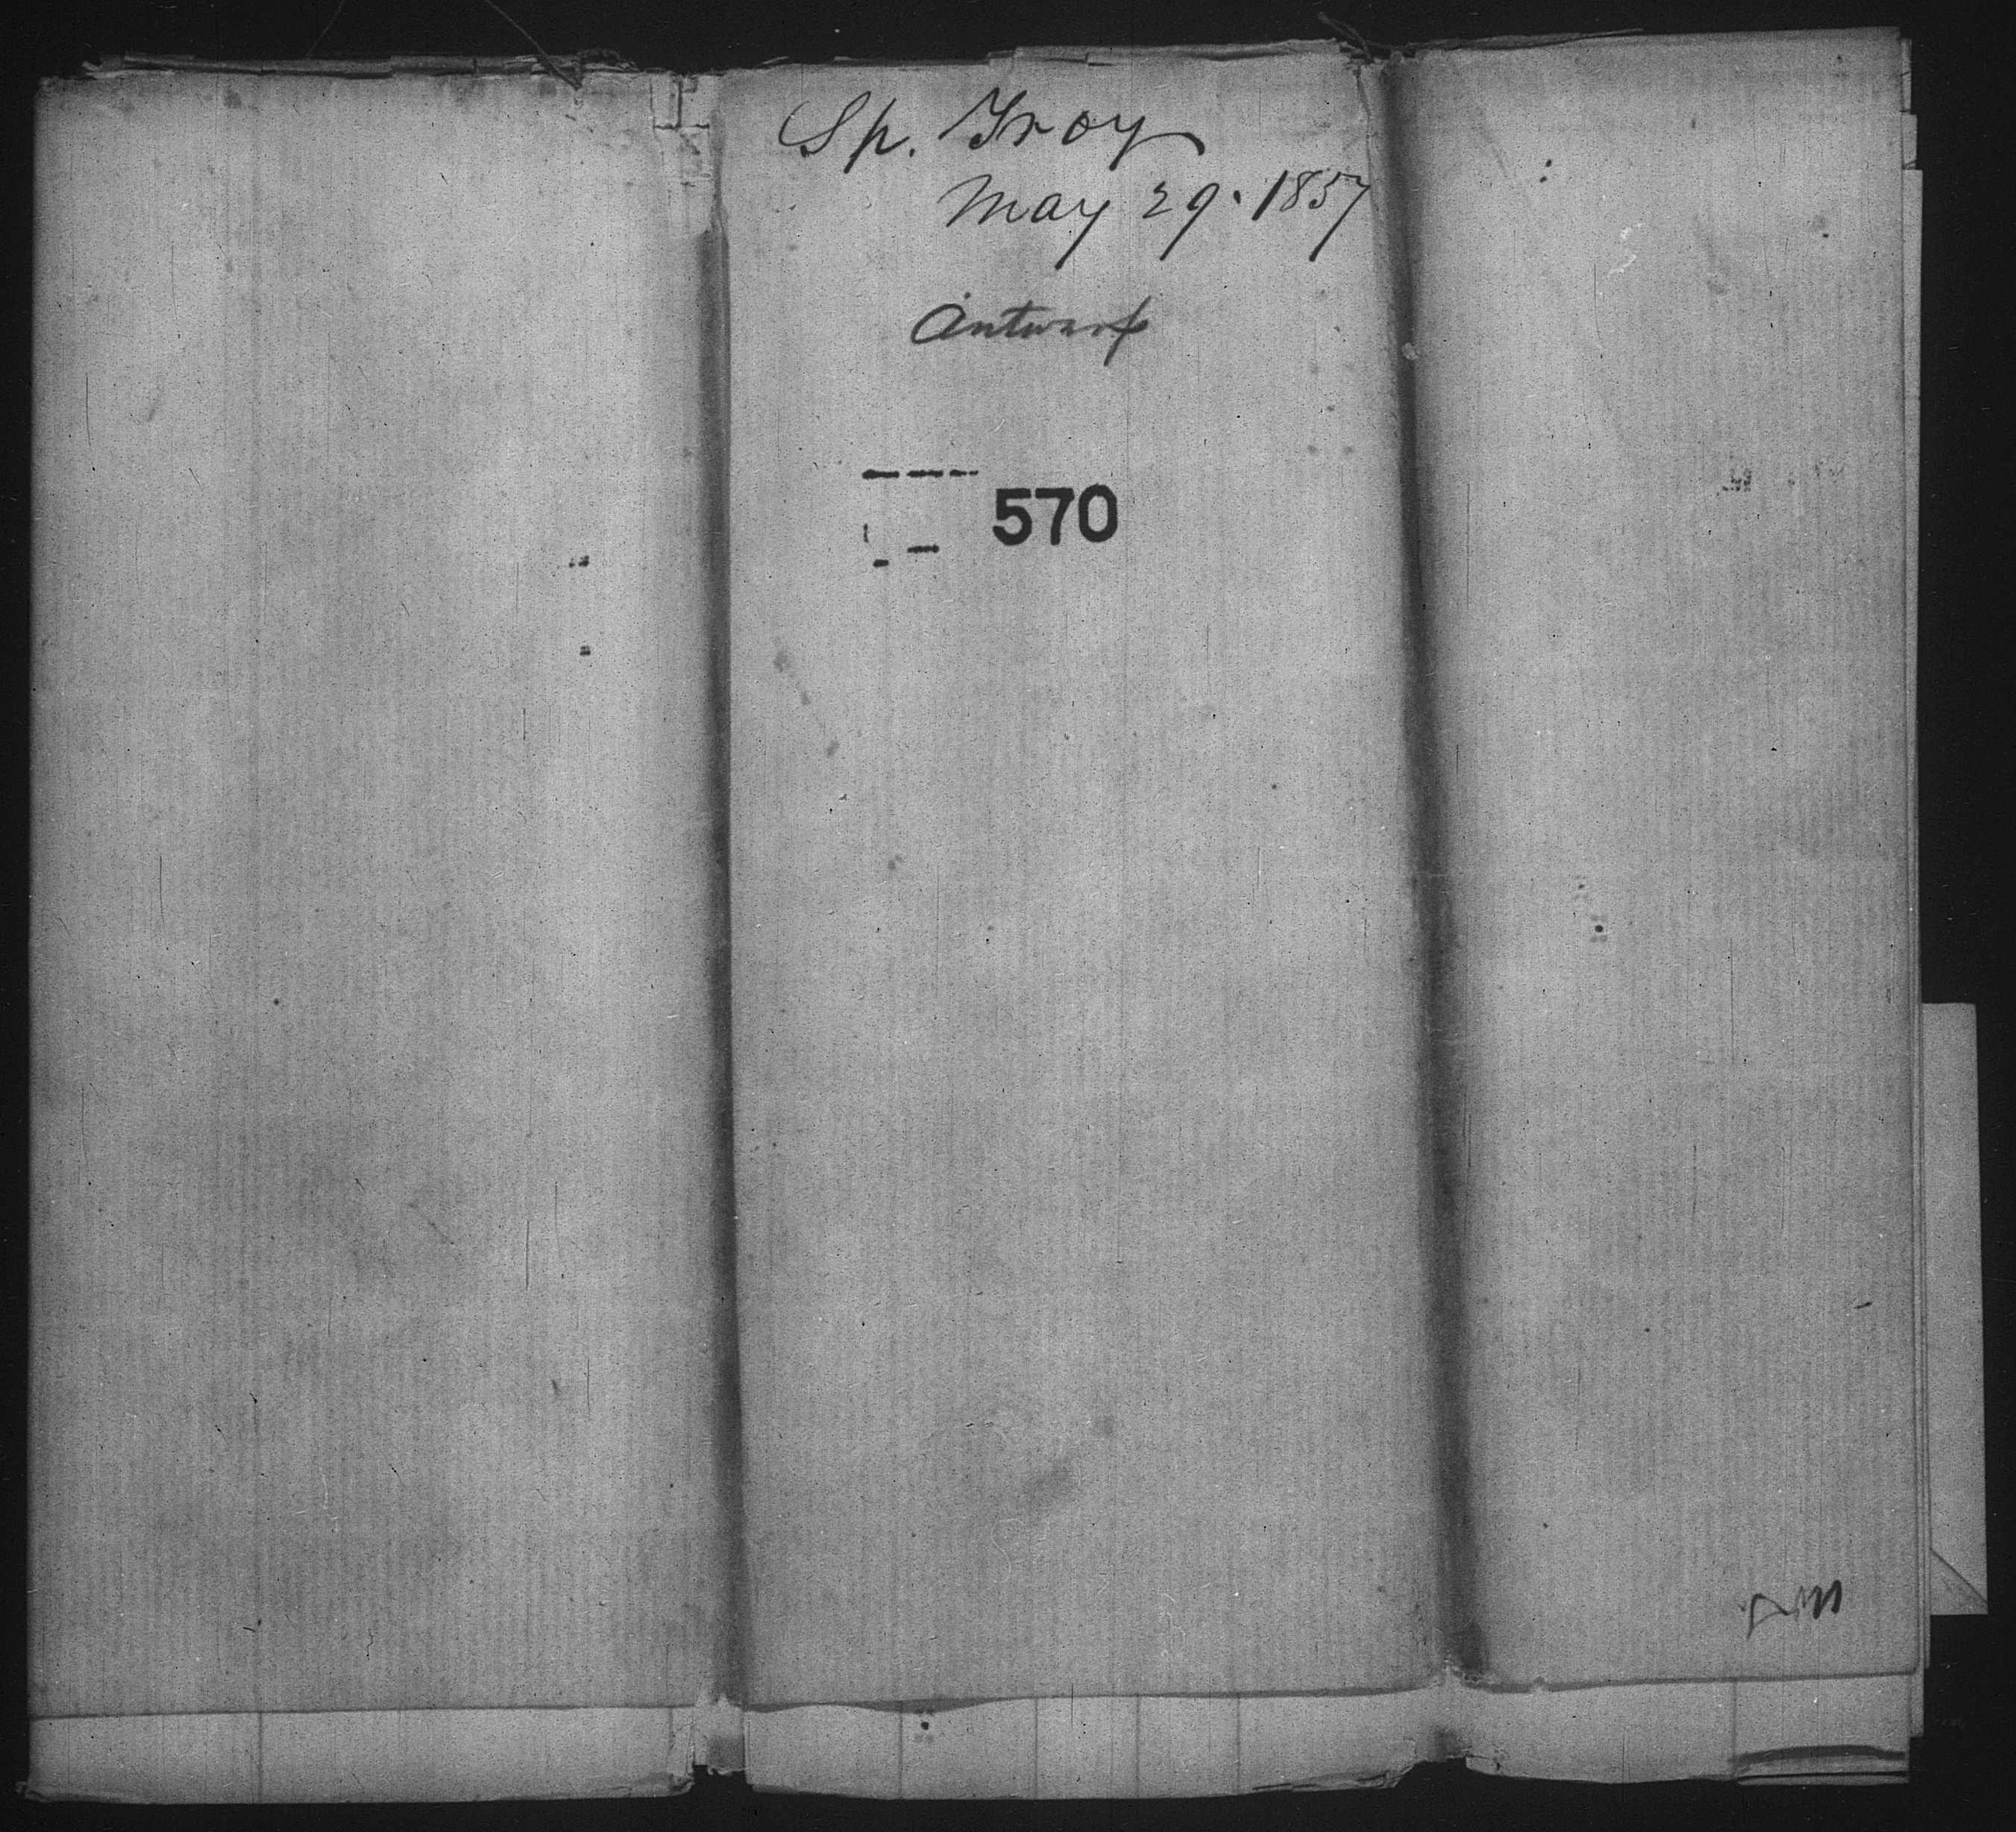 Sp. Troy
May 29. 1857
Antwerp
570